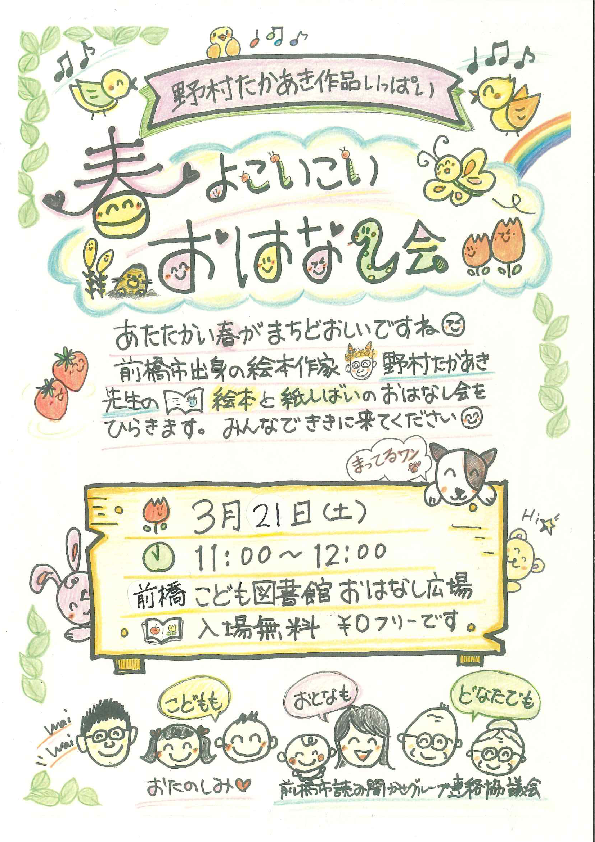 野村たかあき作品いっぱい
春よこいこい
おはなし会
あたたかい春がまちどおしいですね
前橋市出身の絵本作家 野村たかあき
先生の 絵本と紙しばいのおはなし会を
ひらきます。みんなでききに来てください
まってるワン
3月21日(土)
Hi
11:00～12:00
前橋こども図書館 おはなし広場
入場無料 ¥0フリーです
wai
wai
こどもも
おとなも
どなたでも
おたのしみ
前橋市読み聞かせグループ連絡協議会